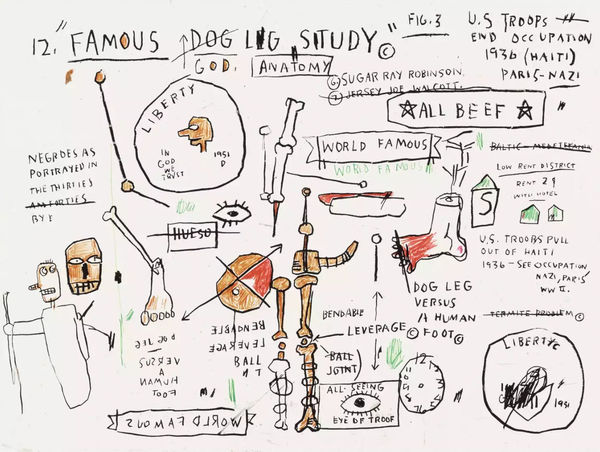 12. "FAMOUS DOG LEG STUDY" ©
FIG. 3
GOD.
ANATOMY
⑥ SUGAR RAY ROBINSON.
⑦ JERSEY JOE WALCOTT.
U.S TROOPS
END OCCUPATION
1936 (HAITI)
PARIS-NAZI
ALL BEEF
LIBERTY
IN
GOD
WE
TRUST
1951
D
WORLD FAMOUS
WORLD FAMOUS
BALTIC-
LOW RENT DISTRICT
RENT 2¢
WITH HOTEL
S
NEGROES AS
PORTRAYED IN
THE THIRTIES
BY
HUESO
U.S. TROOPS PULL
OUT OF HAITI
1936-SEE OCCUPATION
NAZI, PARIS
WW II.
DOG LEG
VERSUS
A HUMAN
© FOOT ©
BENDABLE
LEVERAGE
BALL
JOINT
BENDABLE
LEVERAGE
BALL
DOG LEG
VERSUS
A
HUMAN
FOOT
TERMITE PROBLEM ©
LIBERTY ©
1951
ALL-SEEING
EYE OF TROOF
12
WORLD FAMOUS